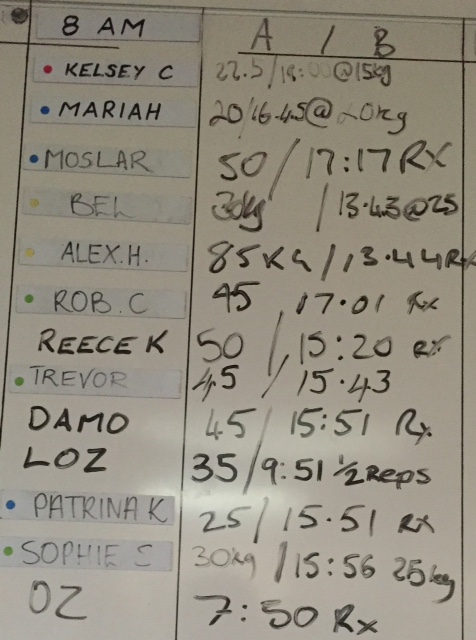 8 AM A / B
KELSEY C 22.5/19:00@15kg
MARIAH 20/16.45@20kg
MOSLAR 50/17:17 RX
BEL 30kg / 13.43@25
ALEX.H. 85KG/13.44RX
ROB.C 45 , 17.01 Rx
REECE K 50 / 15:20 RX
TREVOR 45 / 15.43
DAMO 45/ 15:51 Rx
LOZ 35/9:51 ½ Reps
PATRINA K 25/15.51 RX
SOPHIE S 30kg /15:56 25kg
OZ 7:50 Rx